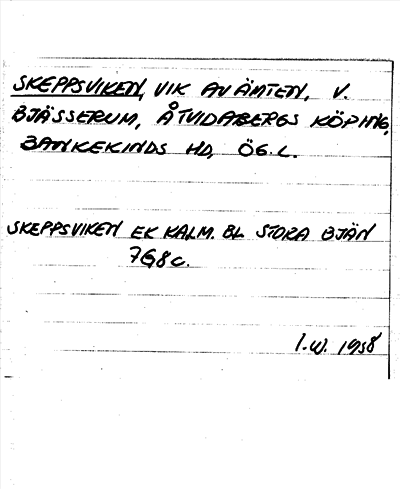 SKEPPSVIKEN, VIK AV ÄMTEN, V.
BJÄSSERUM, ÅTVIDABERGS KÖPING,
BANKEKINDS HD, ÖG.L.
SKEPPSVIKEN EK KALM. BL STORA BJÄN
7G8c.
I.W. 1958